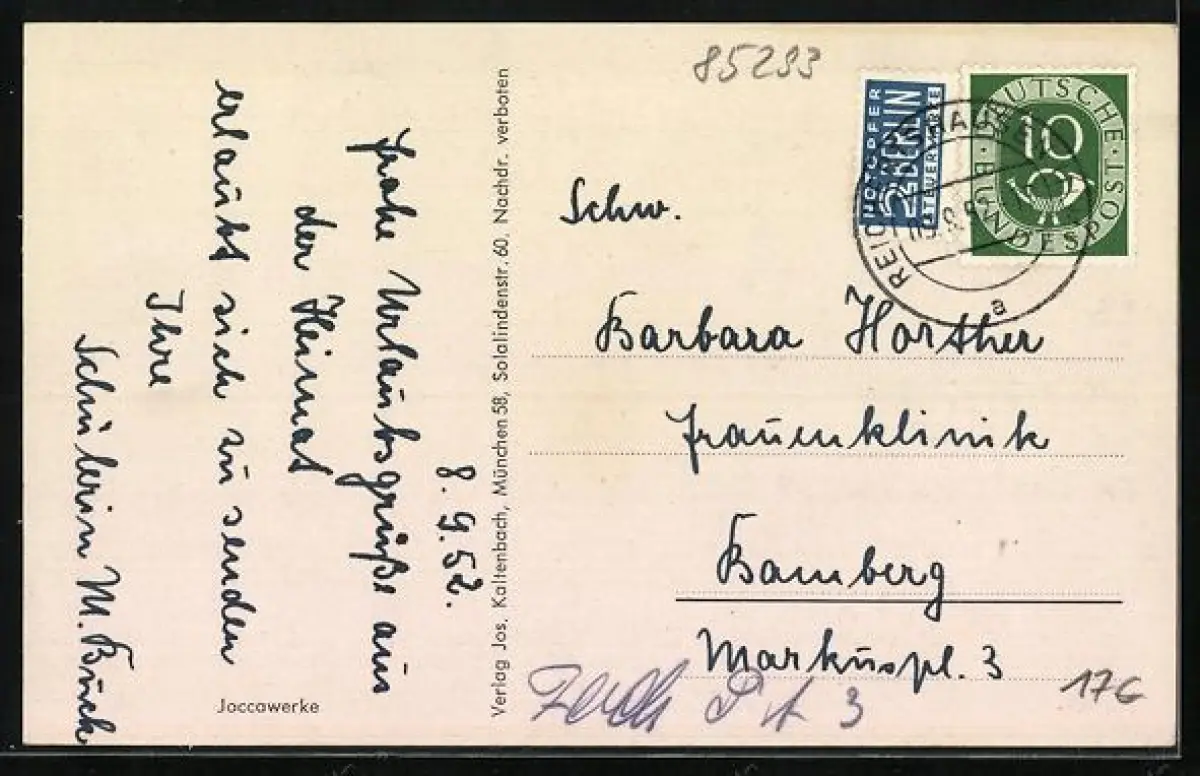 8.9.52.
Frohe Urlaubsgrüße aus
der Heimat
erlaubt sich zu senden
Ihre
Schülerin M. Burck
Joccawerke
Verlag Jos. Kaltenbach, München 58, Solalindenstr. 60, Nachdr. verboten
85293
NOTOPFER
2 BERLIN
STEUERMARKE
DEUTSCHE BUNDESPOST
10
a
Schw.
Barbara Horther
Frauenklinik
Bamberg
Markuspl. 3
3
17G